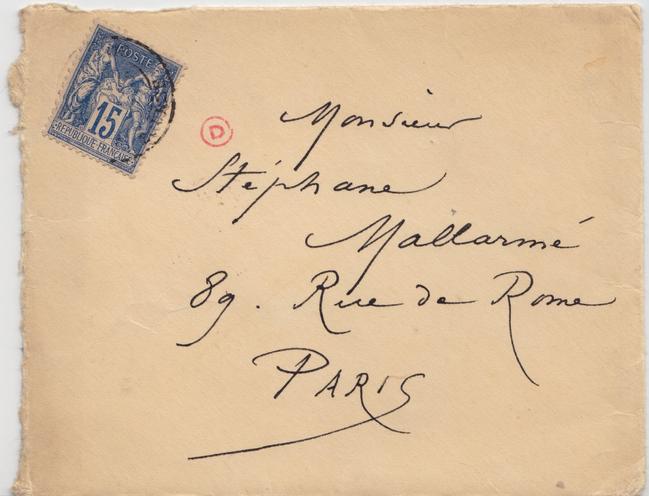 POSTES
15
RÉPUBLIQUE FRANÇAISE
D
Monsieur
Stéphane
Mallarmé
89. Rue de Rome
PARIS